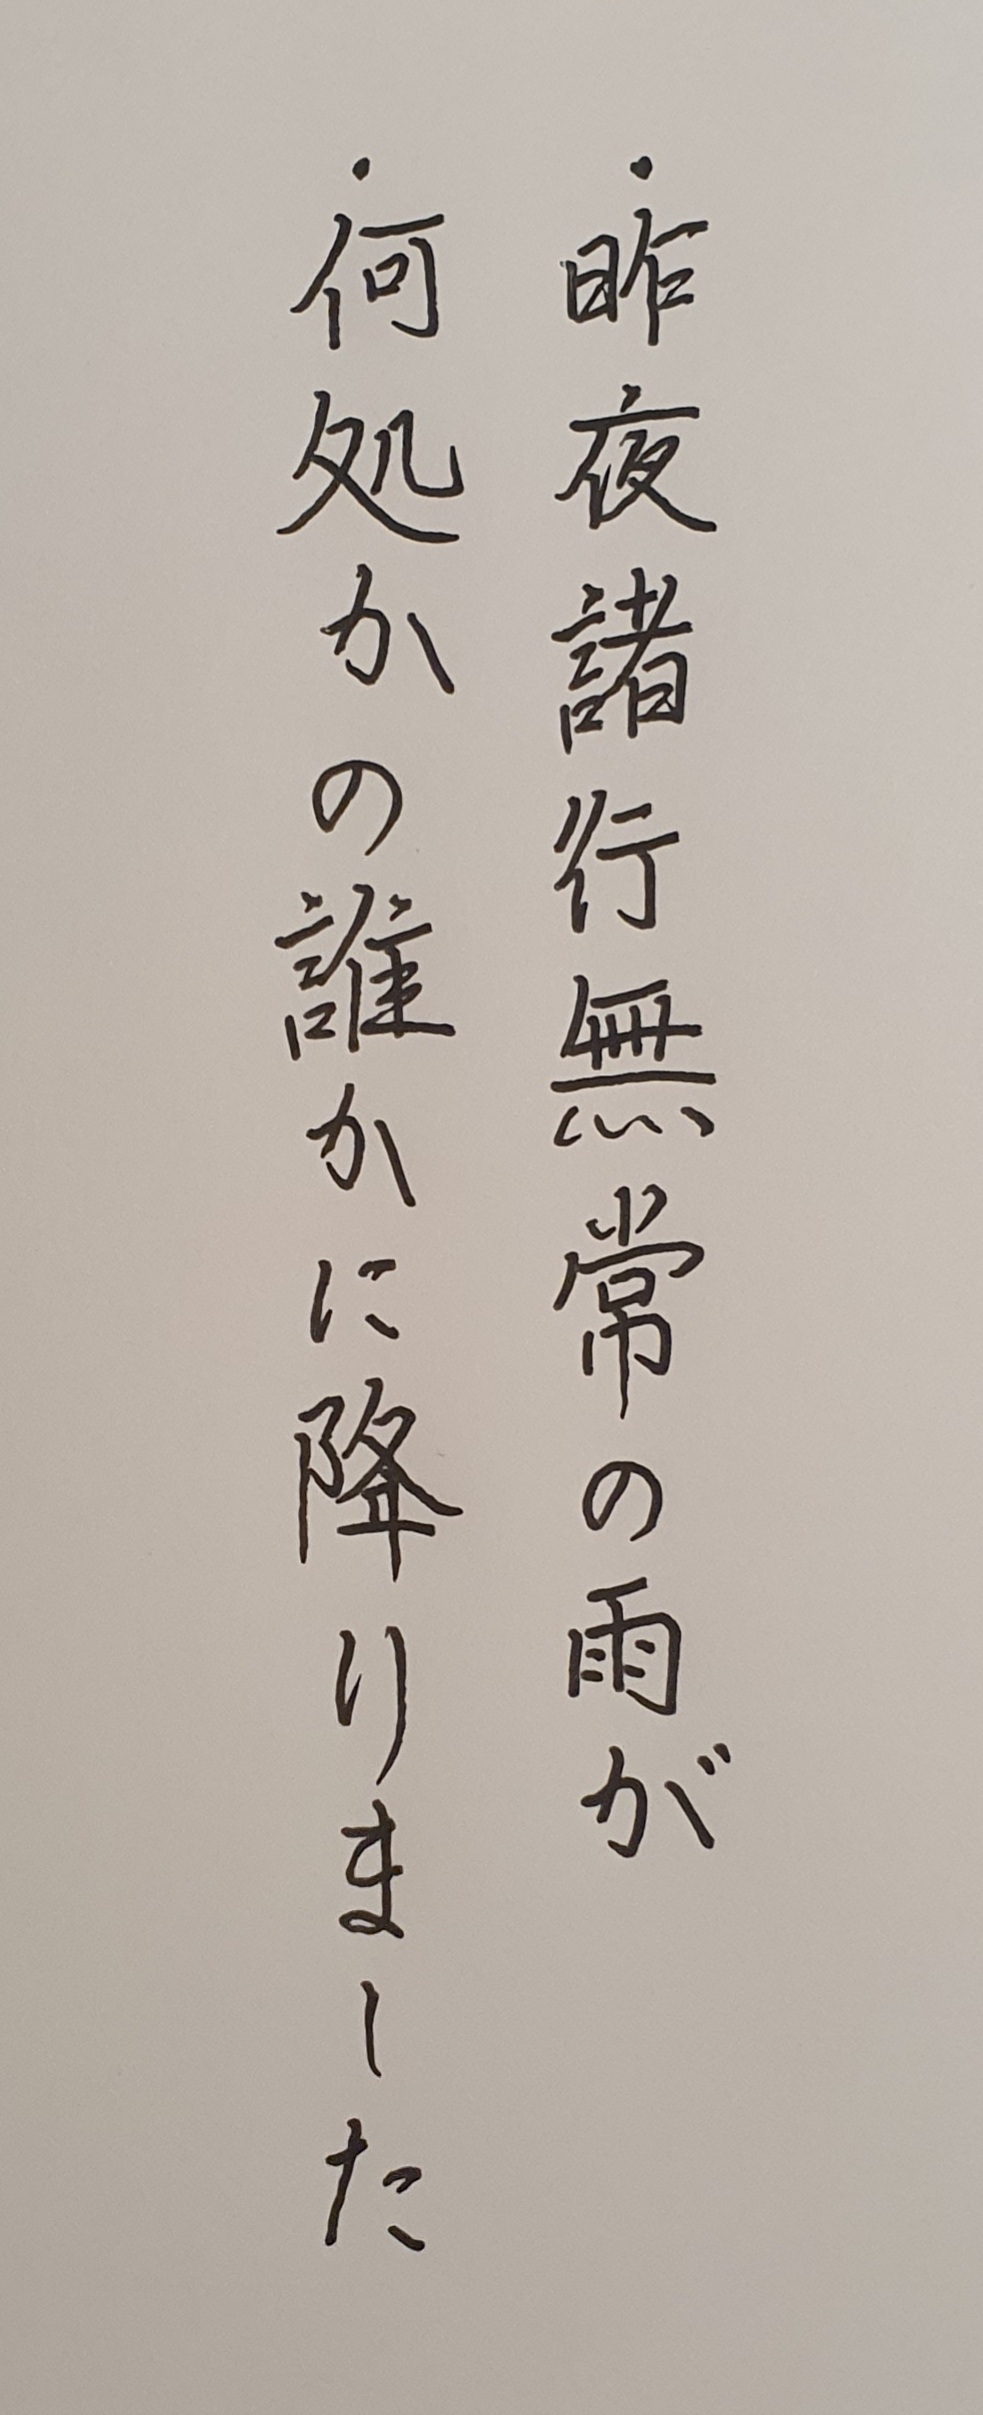 ・昨夜諸行無常の雨が
・何処かの誰かに降りました